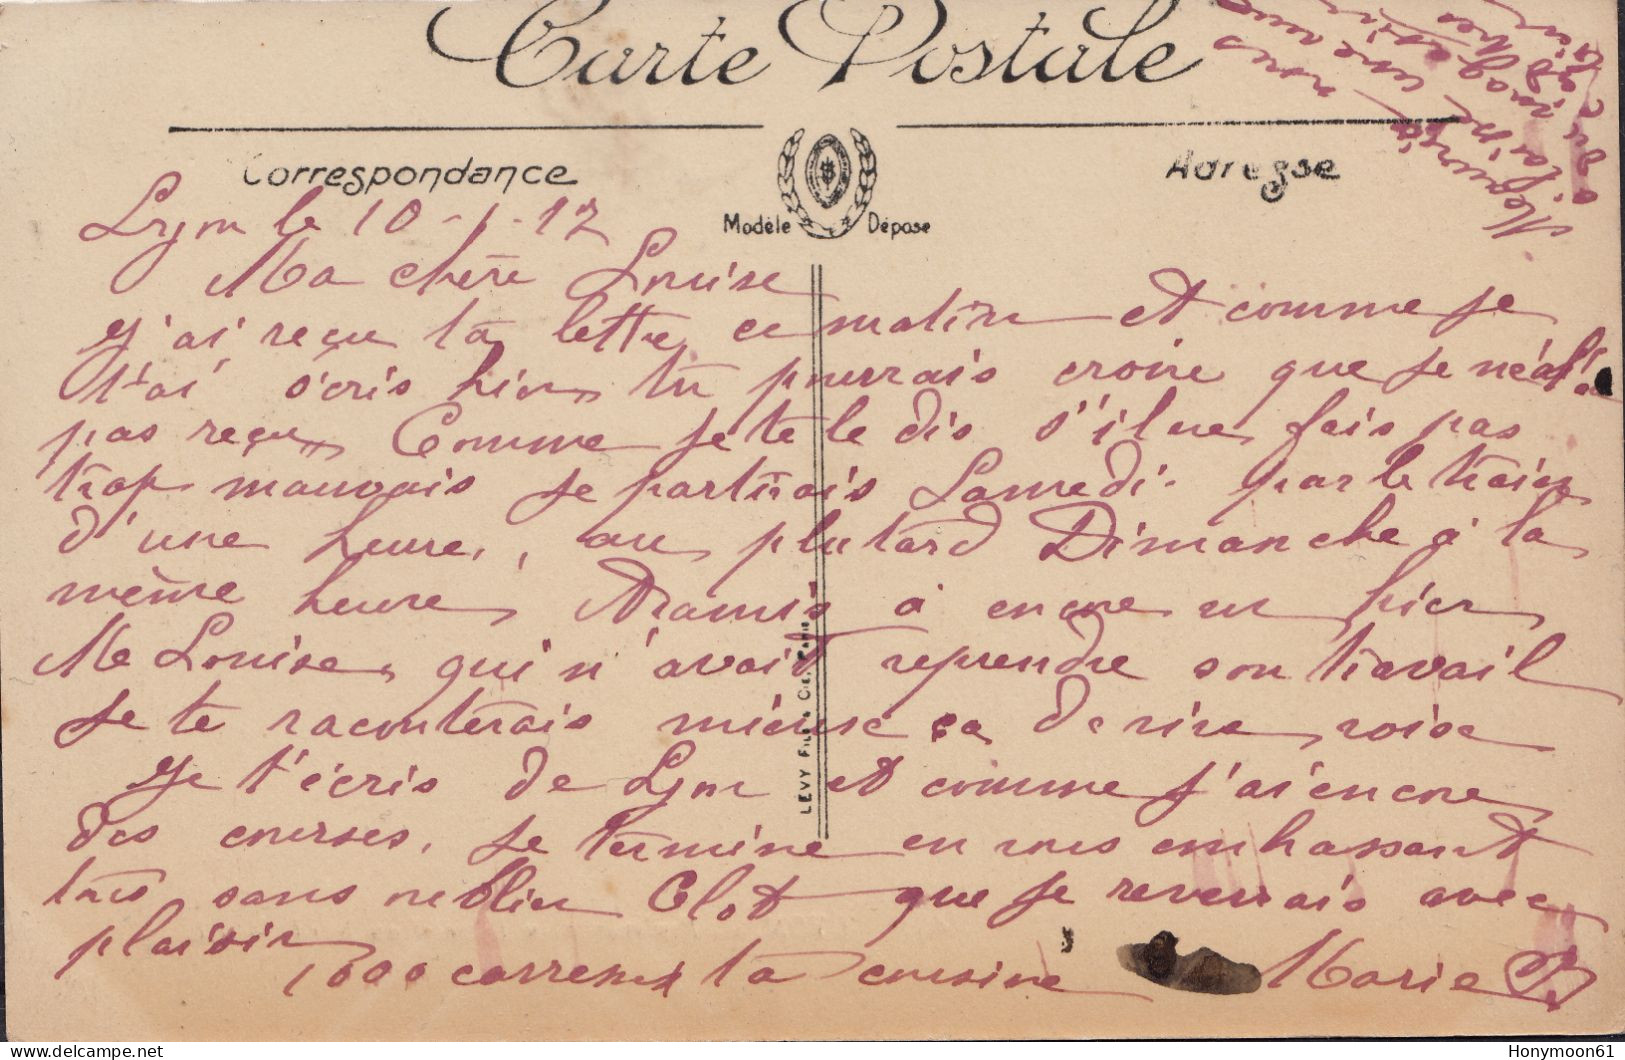 Carte Postale
Correspondance
Adresse
Modèle Déposé
LEVY FILS & CIE, PARIS
Lyon le 10-1-12
Ma chère Louise
j'ai reçu ta lettre ce matin et comme je
t'ai s'cris hier, tu pourrais croire que je
pas reçu, Comme je te le dis s'il ne fais pas
trop mauvais je partirais Samedi par le train
d'une heure, au plutard Dimanche à la
même heure, à encore un hier
Me Louise, qui n'avait reprendre son travail
Je te raconterais mieux ça de vive voix
Je t'écris de Lyon et comme j'ai encore
des courses, je termine en vous embrassant
tous sans oublier Clot que je reverrais avec
plaisir
1000 caresses ta cousine Marie B
nous
une
Honymoon61